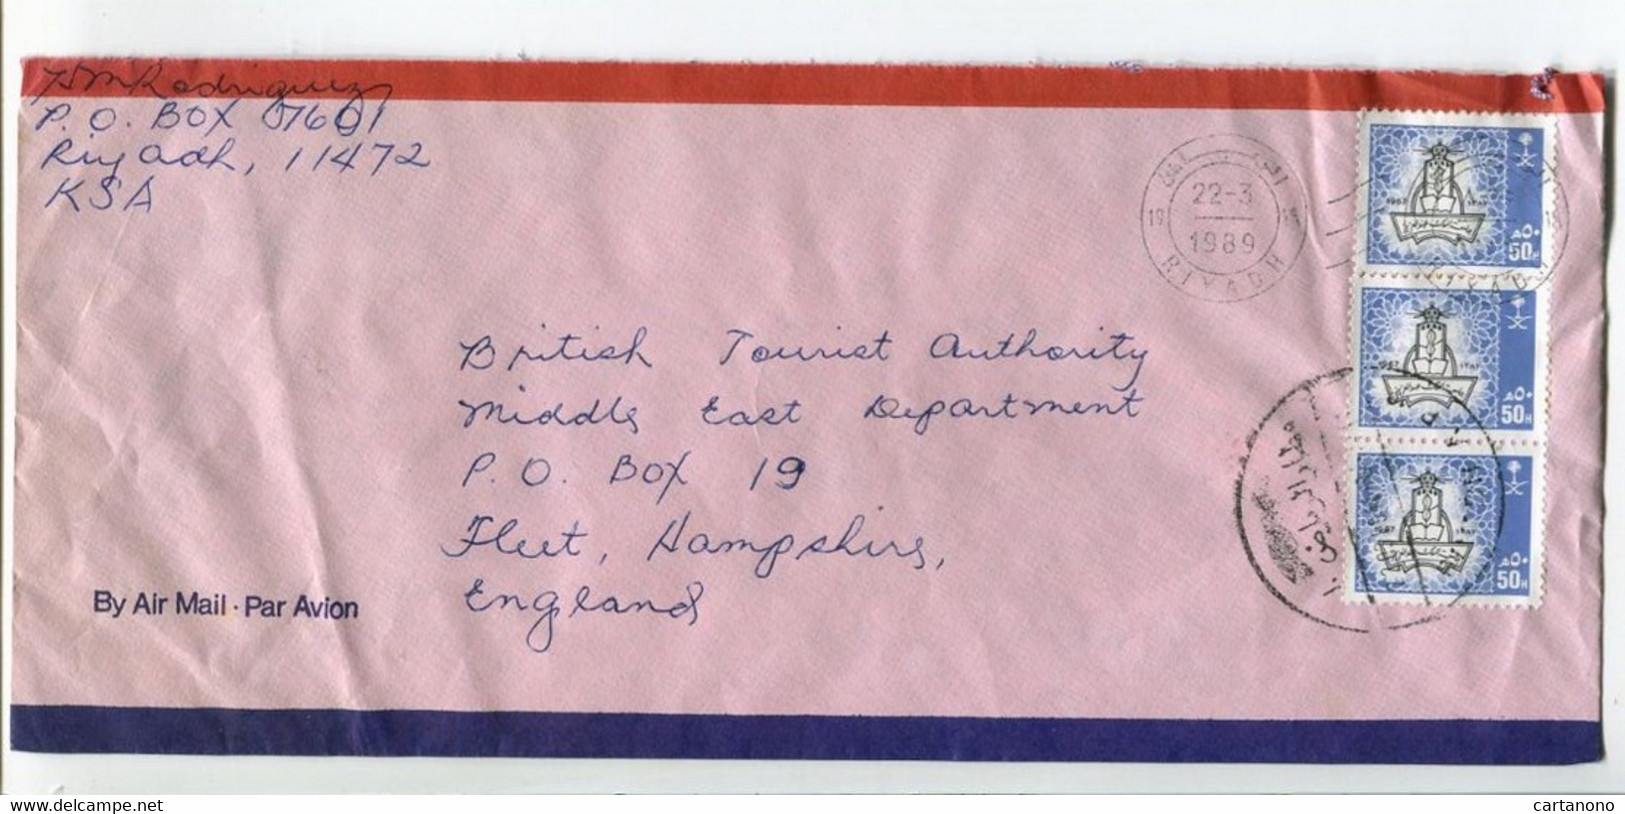 HM Rodriguez
P.O. Box 07601
Riyadh, 11472
KSA
22-3
19
1989
RIYADH
1957 ١٣٨٢
٥٠ هـ
50H
1957 ١٣٨٢
٥٠ هـ
50H
٥٠ هـ
50H
British Tourist Authority
Middle East Department
P.O. Box 19
Fleet, Hampshire,
England
By Air Mail · Par Avion
www.delcampe.net
cartanono